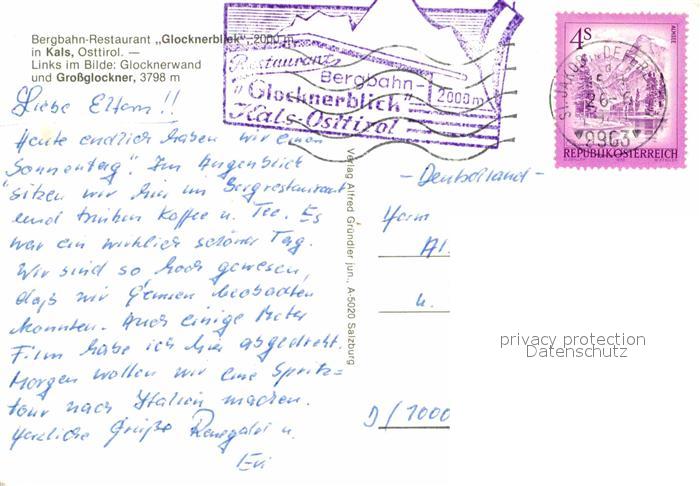 Bergbahn-Restaurant „Glocknerblick“, 2000 m
in Kals, Osttirol. —
Links im Bilde: Glocknerwand
und Großglockner, 3798 m
Restaurant
Bergbahn-
„Glocknerblick“
2000m
Kals-Osttirol
4S
ALMSEE
REPUBLIK ÖSTERREICH
ST. JAKOB IN DEF
9963
Liebe Eltern!!
Heute endlich haben wir einen
"Sonnentag". Im Augenblick
sitzen wir hier im Bergrestaurant
und trinken Kaffee u. Tee. Es
war ein wirklich schöner Tag.
Wir sind so hoch gewesen,
daß wir Gemsen beobachten
konnten. Auch einige Meter
Film habe ich hier abgedreht.
Morgen wollen wir eine Spritz=
tour nach Italien machen.
Herzliche Grüße u.
Evi
Verlag Alfred Gründler jun., A-5020 Salzburg
- Deutschland -
Herrn
Al
u.
D/1000
privacy protection
Datenschutz